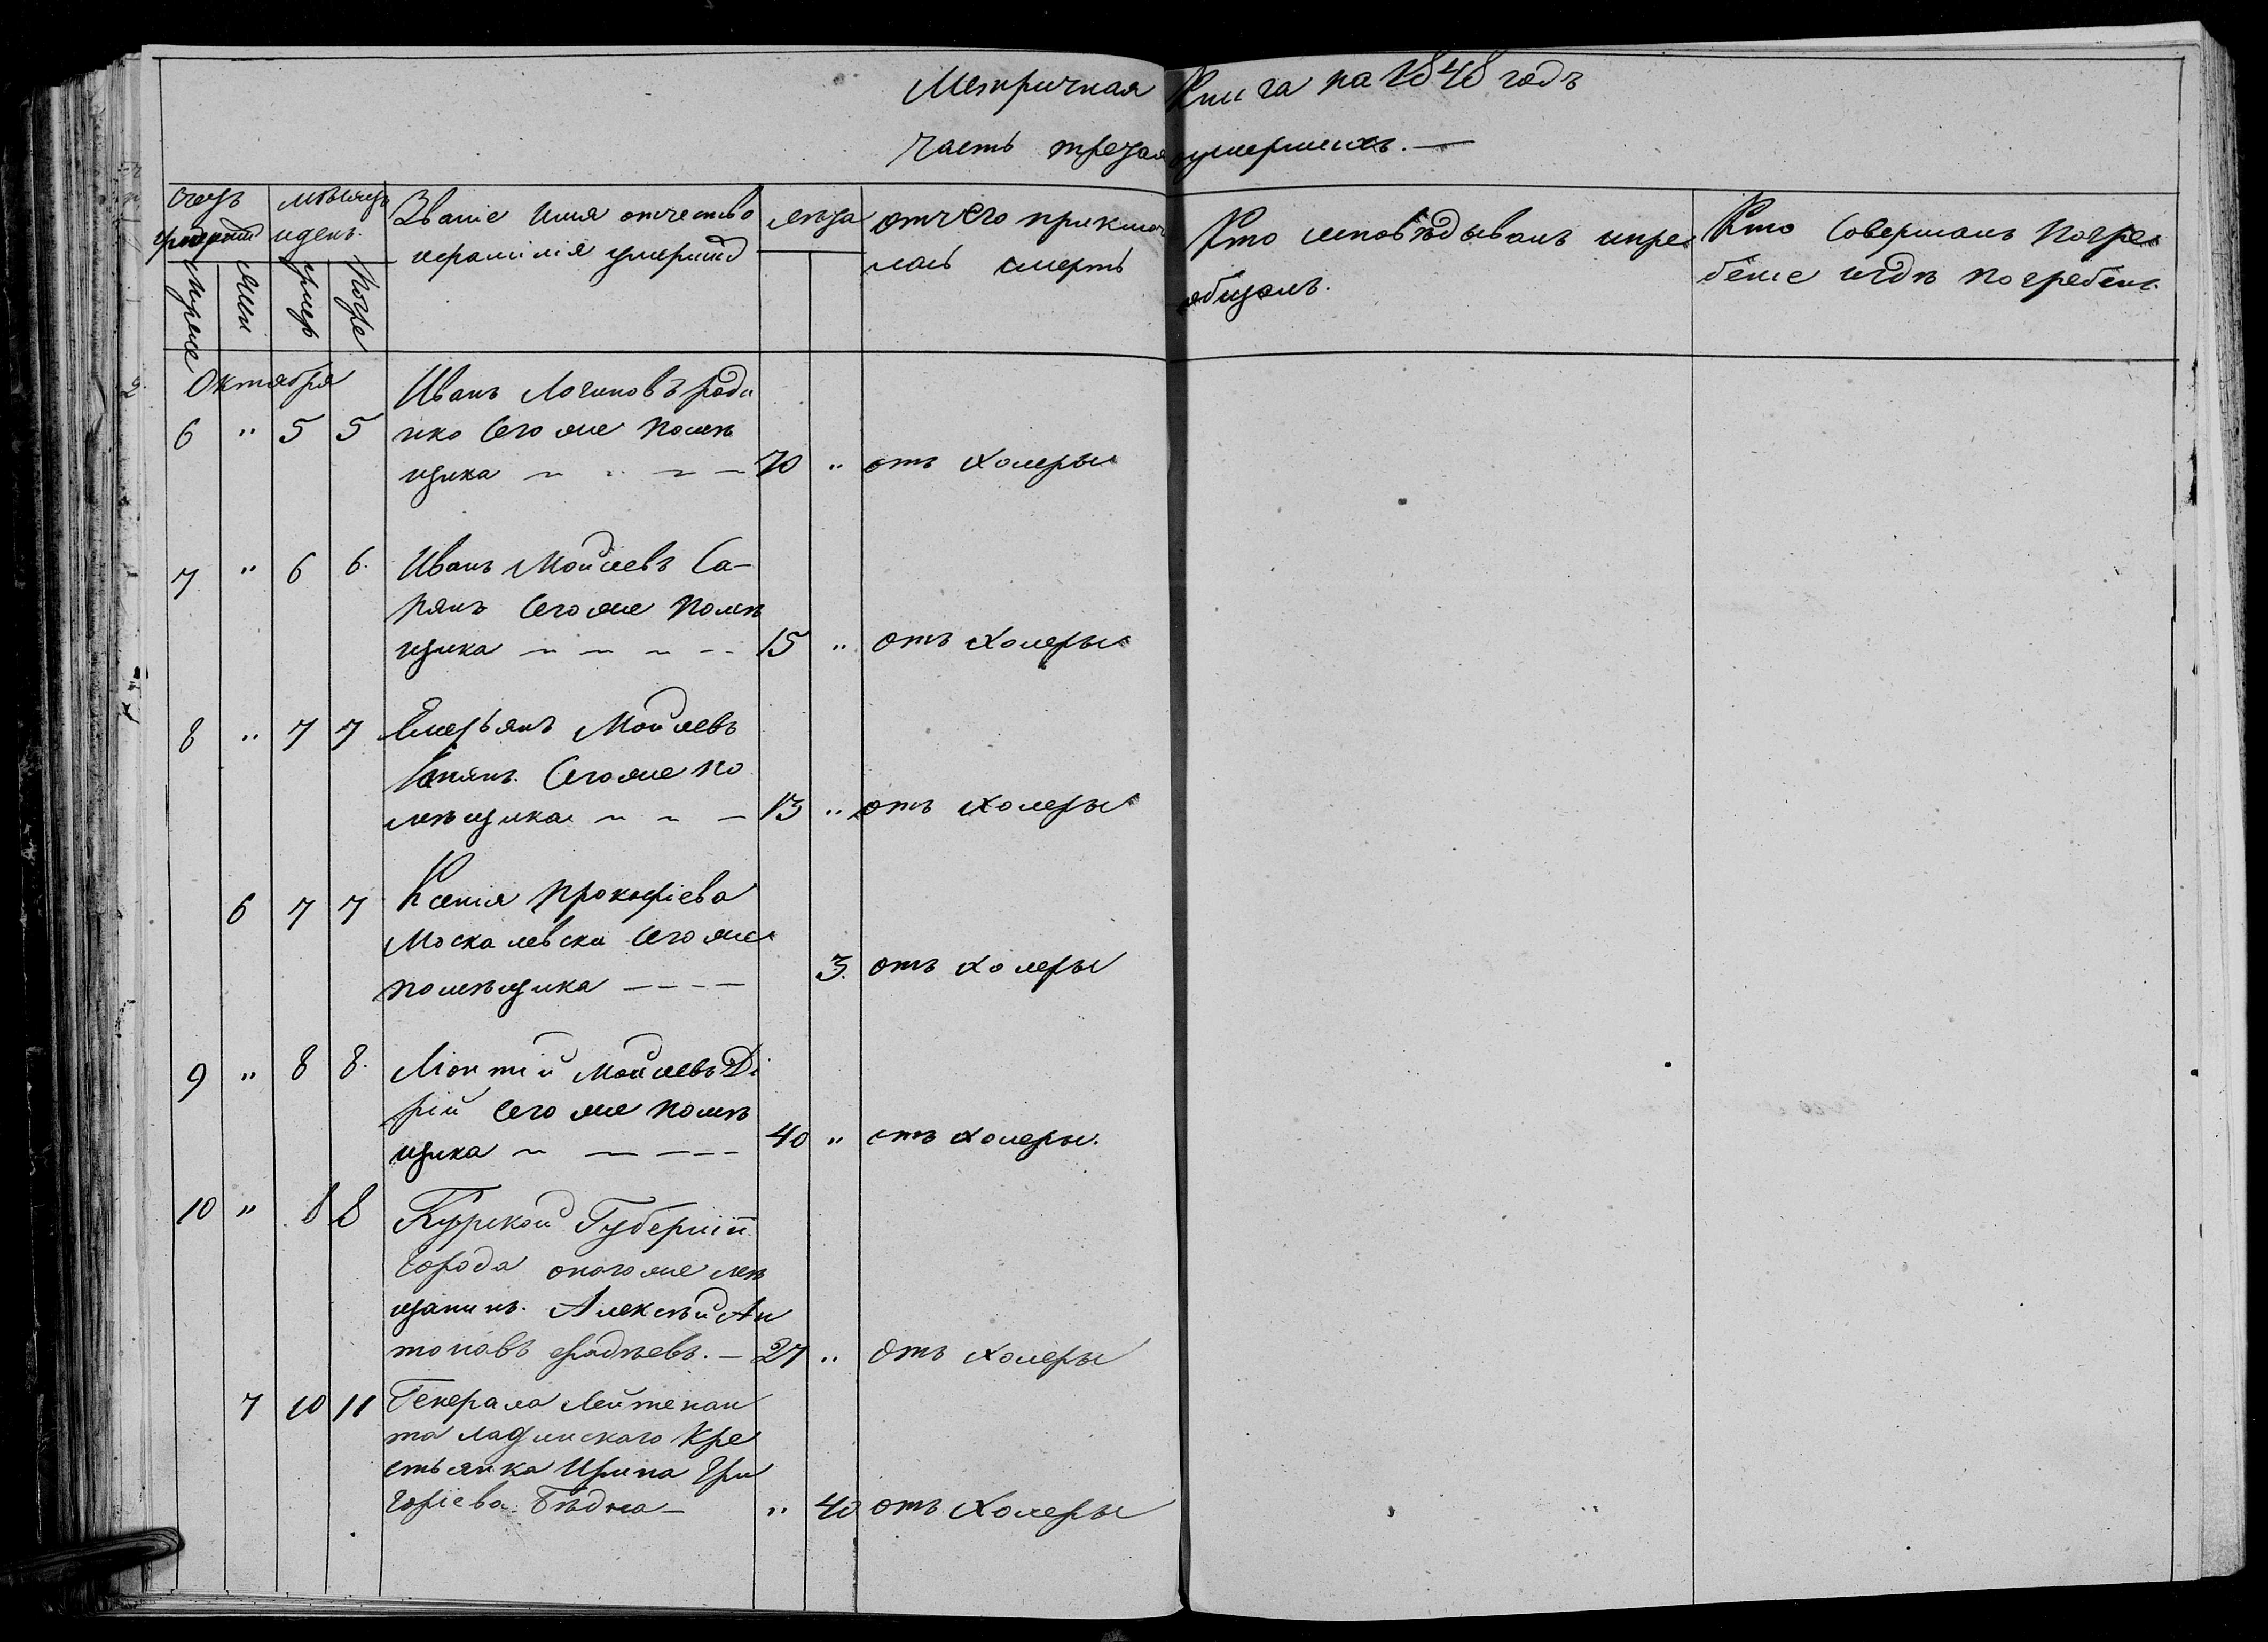 Метричная Книга на 1848 годъ
Часть третая умершихъ. —
Счетъ умершихъ
мѣсяцъ идень.
Званіе Имя отчество
ифамилія умершихъ
лѣта
отчего приключи
лась смерть
Кто исповѣдывалъ ипрі
общалъ.
Кто Совершалъ погре
беніе игдѣ погребены.
Мужеска
Жен
умер
Погре
Октября
6 " 5 5 Иванъ Логиновъ Роди
нко Сегоже помѣ
щика 70 " отъ холеры
7 " 6 6. Иванъ Мойсеевъ Са-
пянъ Сегоже помѣ
щика 15 " отъ холеры
8 " 7 7 Емельянъ Мойсеевъ
Сапянъ. Сегоже по
мѣщика 13 " отъ холеры
6 7 7 Ксенія Прокофіева
Москалевска Сегоже
помѣщика - - - - 3. отъ холеры
9 " 8 8. Ліонтій Мойсеевъ Ді
рій Сегоже помѣ
щика 40 " отъ холеры.
10 " 8 8 Курской Губерніи
Города оногоже мѣ
щанинъ. Алексѣй Ан
тоновъ Фадѣевъ. — 27 " отъ холеры
7 10 11 Генерала Лейтенан
та Ладинскаго Кре
стьянка Ирина Гри
горіева Бѣдна — " 40 отъ Холеры